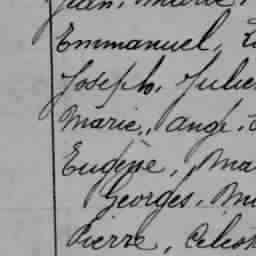 Jean, Marie
Emmanuel,
Joseph, Julie
Marie, Ange,
Eugène, Ma
Georges, M
Pierre, Célest